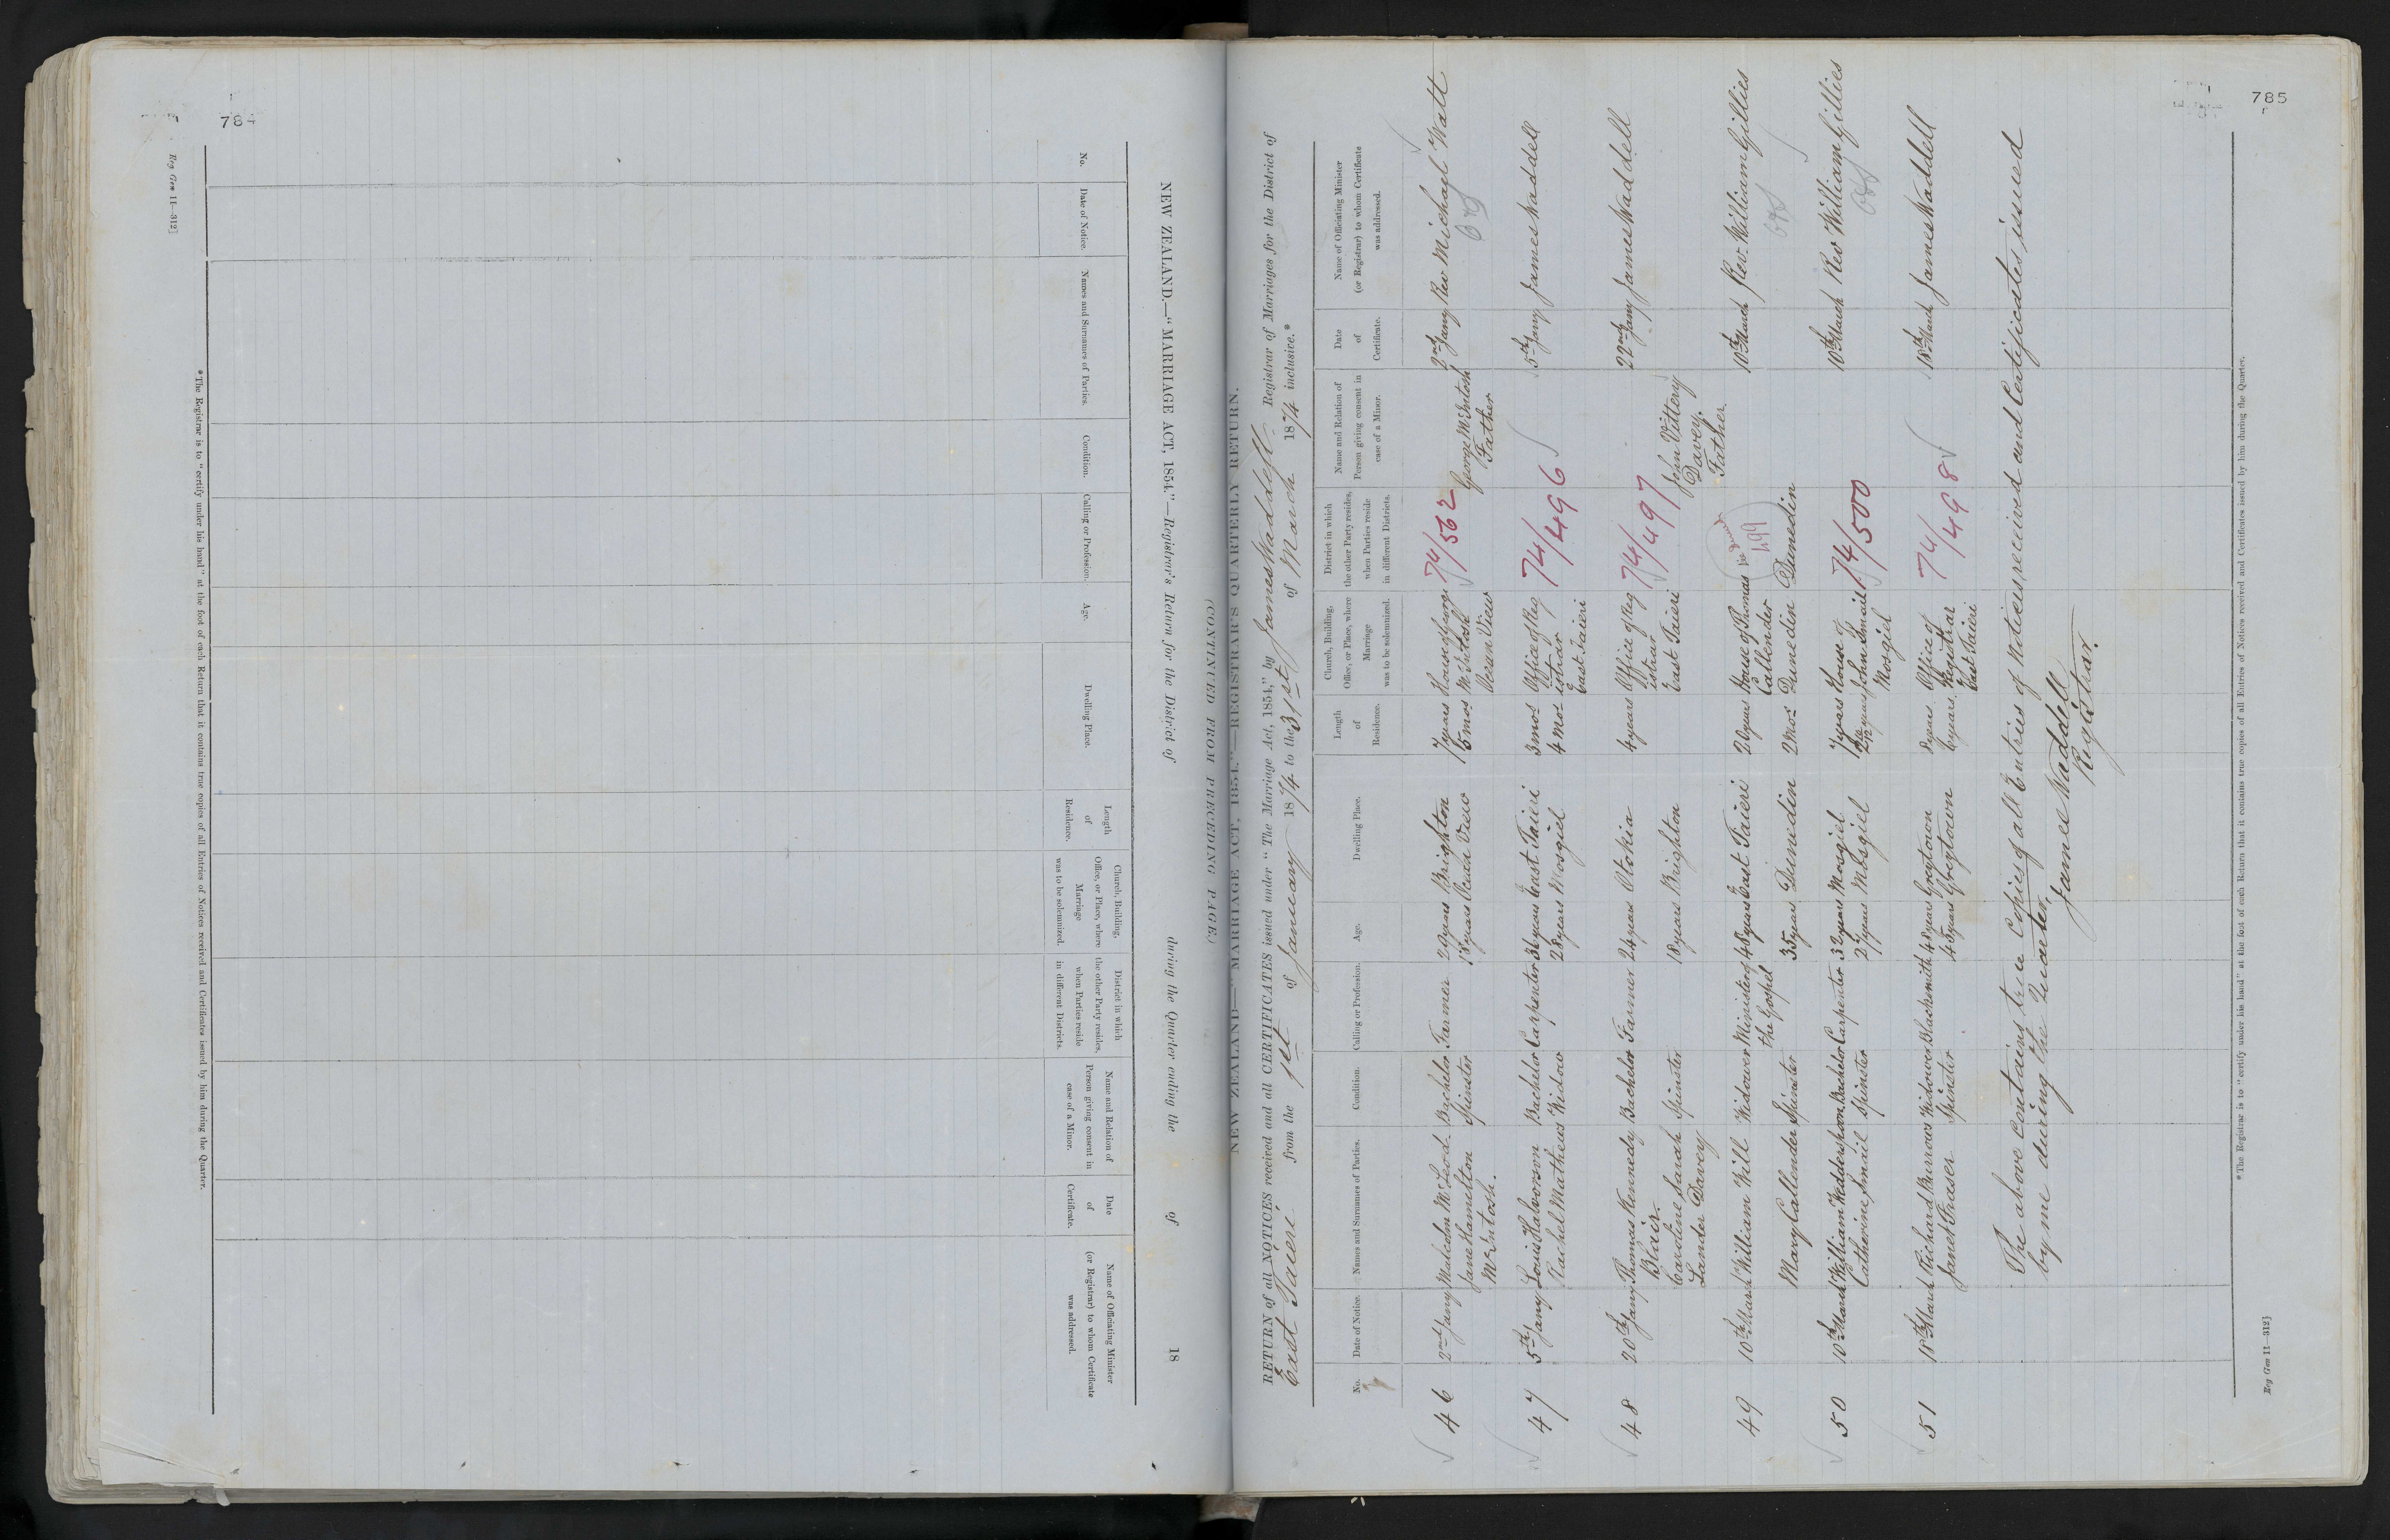 784
Reg Gen 11—312]
NEW ZEALAND.—"MARRIAGE ACT, 1854."—Registrar's Return for the District of during the Quarter ending the of 18
No.
Date of Notice.
Names and Surnames of Parties.
Condition.
Calling or Profession.
Age.
Dwelling Place.
Length
of
Residence.
Church, Building,
Office, or Place, where
Marriage
was to be solemnized.
District in which
the other Party resides,
when Parties reside
in different Districts.
Name and Relation of
Person giving consent in
case of a Minor.
Date
of
Certificate.
Name of Officiating Minister
(or Registrar) to whom Certificate
was addressed.
*The Registrar is to "certify under his hand" at the foot of each Return that it contains true copies of all Entries of Notices received and Certificates issued by him during the Quarter.
785
(CONTINUED FROM PRECEDING PAGE.)
NEW ZEALAND—"MARRIAGE ACT, 1854."—REGISTRAR'S QUARTERLY RETURN.
RETURN of all NOTICES received and all CERTIFICATES issued under "The Marriage Act, 1854," by James Waddell Registrar of Marriages for the District of
East Taieri from the 1st of January 1874 to the 31st of March 1874 inclusive.*
No.
Date of Notice.
Names and Surnames of Parties.
Condition.
Calling or Profession.
Age.
Dwelling Place.
Length
of
Residence.
Church, Building,
Office, or Place, where
Marriage
was to be solemnized.
District in which
the other Party resides,
when Parties reside
in different Districts.
Name and Relation of
Person giving consent in
case of a Minor.
Date
of
Certificate.
Name of Officiating Minister
(or Registrar) to whom Certificate
was addressed.
46 2nd Jany Malcolm McLeod Bachelor Farmer 29 years Brighton 7 years House of George 74/562 2nd Jany Rev Michael Watt
Jane Hamilton Spinster 18 years Ocean View 15 mos McIntosh George McIntosh
McIntosh. Ocean View Father
47 5th Jany Louis Halvorson Bachelor Carpenter 36 years East Taieri 3 mos Office of Reg 74/496 5th Jany James Waddell
Rachel Mathews Widow 28 years Mosgiel 4 mos istrar
East Taieri
48 20th Jany Thomas Kennedy Bachelor Farmer 24 years Otokia 4 years Office of Reg 74/497 22nd Jany James Waddell
Blair. istrar
Caroline Sarah Spinster 18 years Brighton East Taieri John Vittery
Lander Davey Davey.
Father.
49 10th March William Will Widower Minister of 48 years East Taieri 20 years House of Thomas 499 10th March Rev. William Gillies
the Gospel Callender
Mary Callender Spinster 35 years Dunedin 2 mos Dunedin Dunedin
50 10th March William Weddershoven Bachelor Carpenter 32 years Mosgiel 7 years House of 74/500 10th March Rev William Gillies
Catherine Smail Spinster 27 years Mosgiel John Smail
Mosgiel
51 18th March Richard Burrows Widower Blacksmith 48 years Greytown 8 years Office of 74/498 18th March James Waddell
Janet Fraser Spinster 45 years Greytown 6 years Registrar
East Taieri
The above contains true copies of all Entries of Notices received and Certificates issued
by me during the Quarter.
James Waddell
Registrar.
*The Registrar is to "certify under his hand" at the foot of each Return that it contains true copies of all Entries of Notices received and Certificates issued by him during the Quarter.
Reg Gen 11—312]